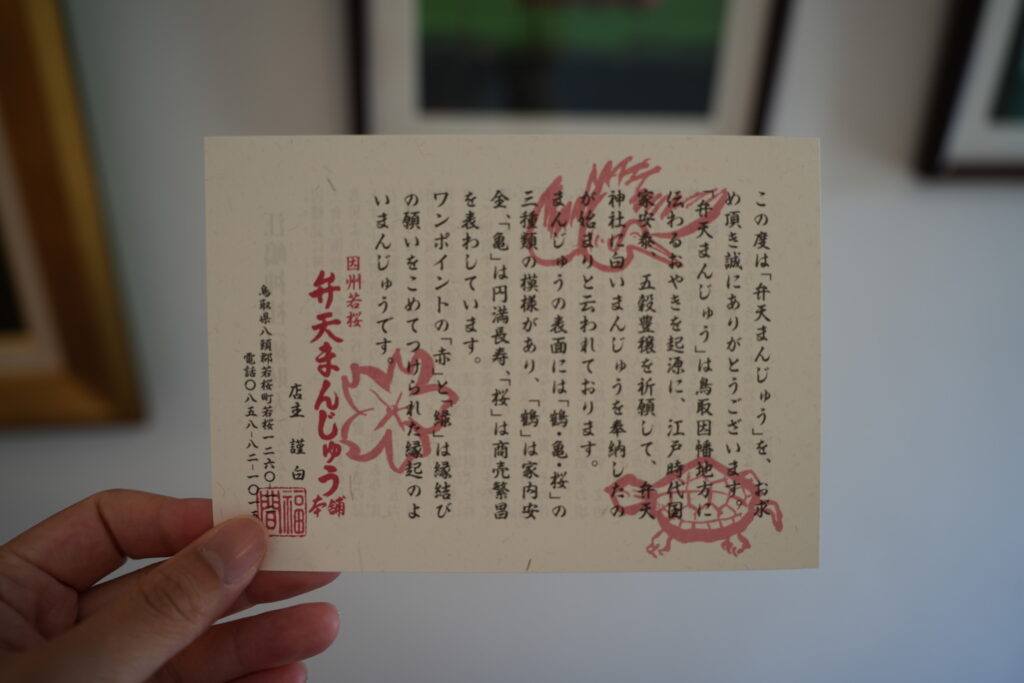 この度は「弁天まんじゅう」を、お求
め頂き誠にありがとうございます。
「弁天まんじゅう」は鳥取因幡地方に
伝わるおやきを起源に、江戸時代国
家安泰、五穀豊穣を祈願して、弁天
神社に白いまんじゅうを奉納したの
が始まりと云われております。
まんじゅうの表面には「鶴・亀・桜」の
三種類の模様があり、「鶴」は家内安
全、「亀」は円満長寿、「桜」は商売繁昌
を表わしています。
ワンポイントの「赤」と「緑」は縁結び
の願いをこめてつけられた縁起のよ
いまんじゅうです。
因州若桜
弁天まんじゅう本舗
店主 謹白
鳥取県八頭郡若桜町若桜一二六〇
電話〇八五八-八二-一〇
福